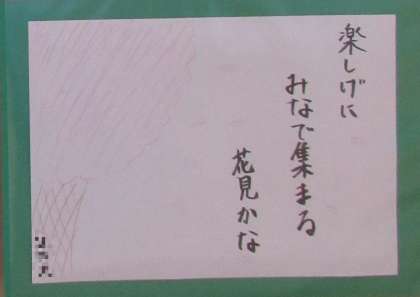 楽しげに
みなで集まる
花見かな